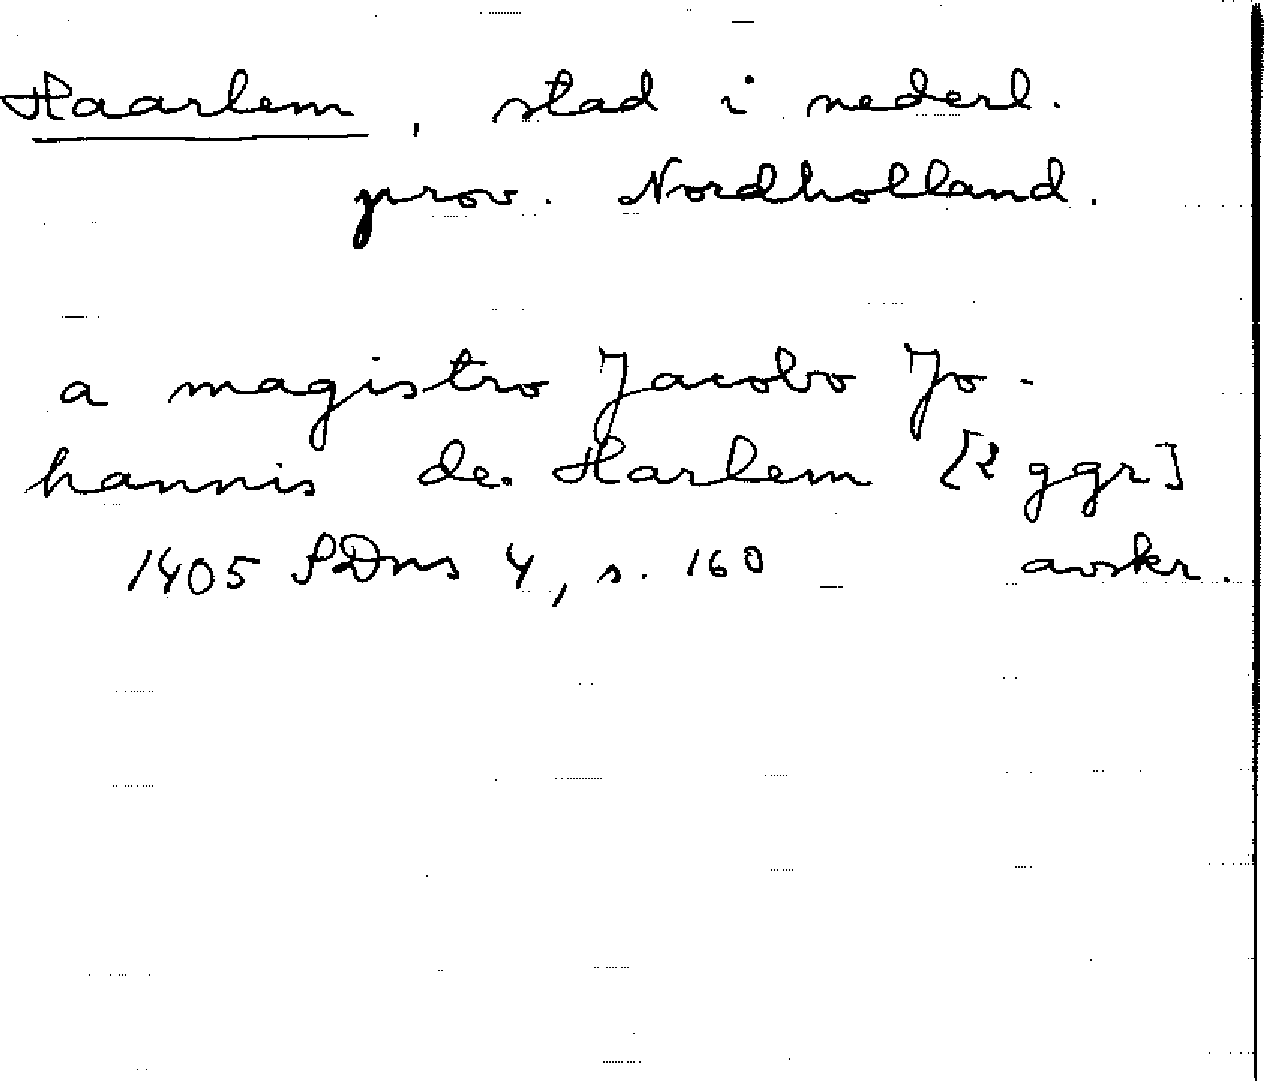 Haarlem, stad i nederl.
prov. Nordholland.
a magistro Jacobo Jo-
hannis de Harlem [2 ggr]
1405 SDns 4, s. 160 avskr.